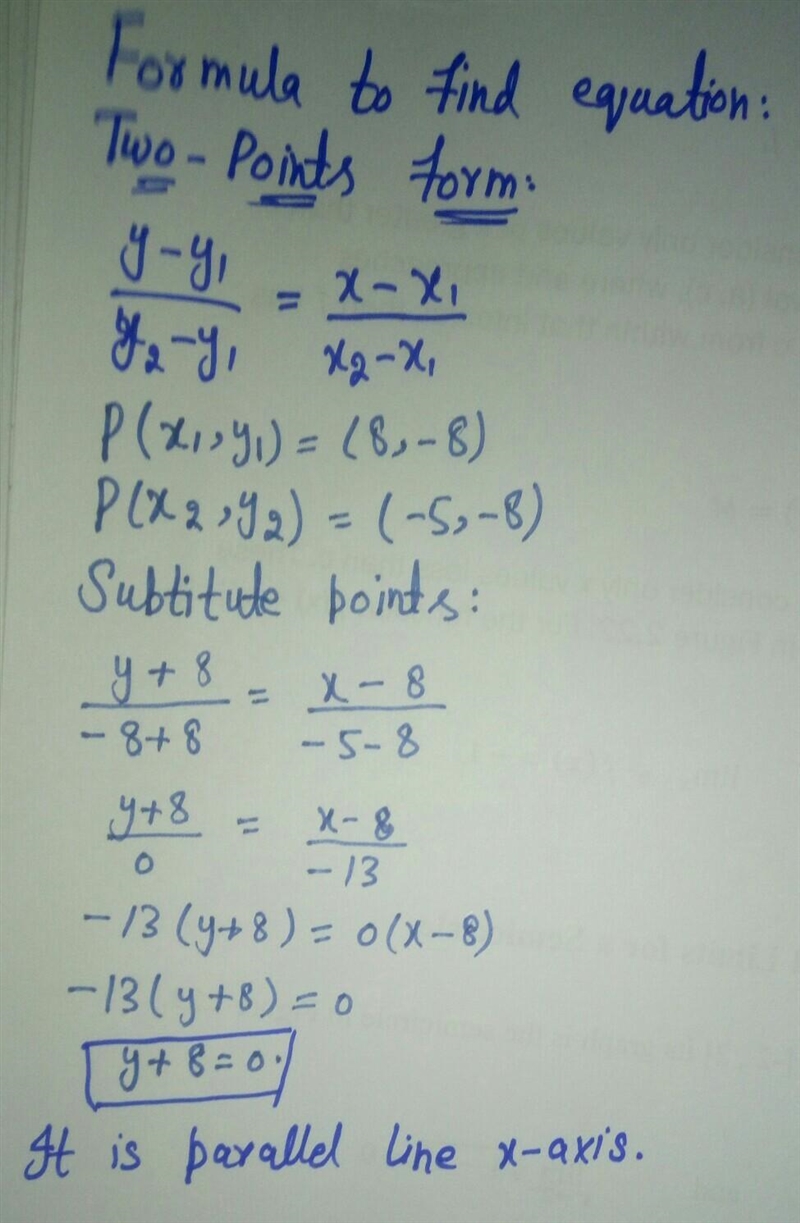 Formula to find equation:
Two-Points form:
y-y₁/y₂-y₁ = x-x₁/x₂-x₁
P(x₁,y₁) = (8,-8)
P(x₂,y₂) = (-5,-8)
Subtitute points:
y+8/-8+8 = x-8/-5-8
y+8/0 = x-8/-13
-13(y+8) = 0(x-8)
-13(y+8) = 0
y+8=0.
It is parallel line x-axis.